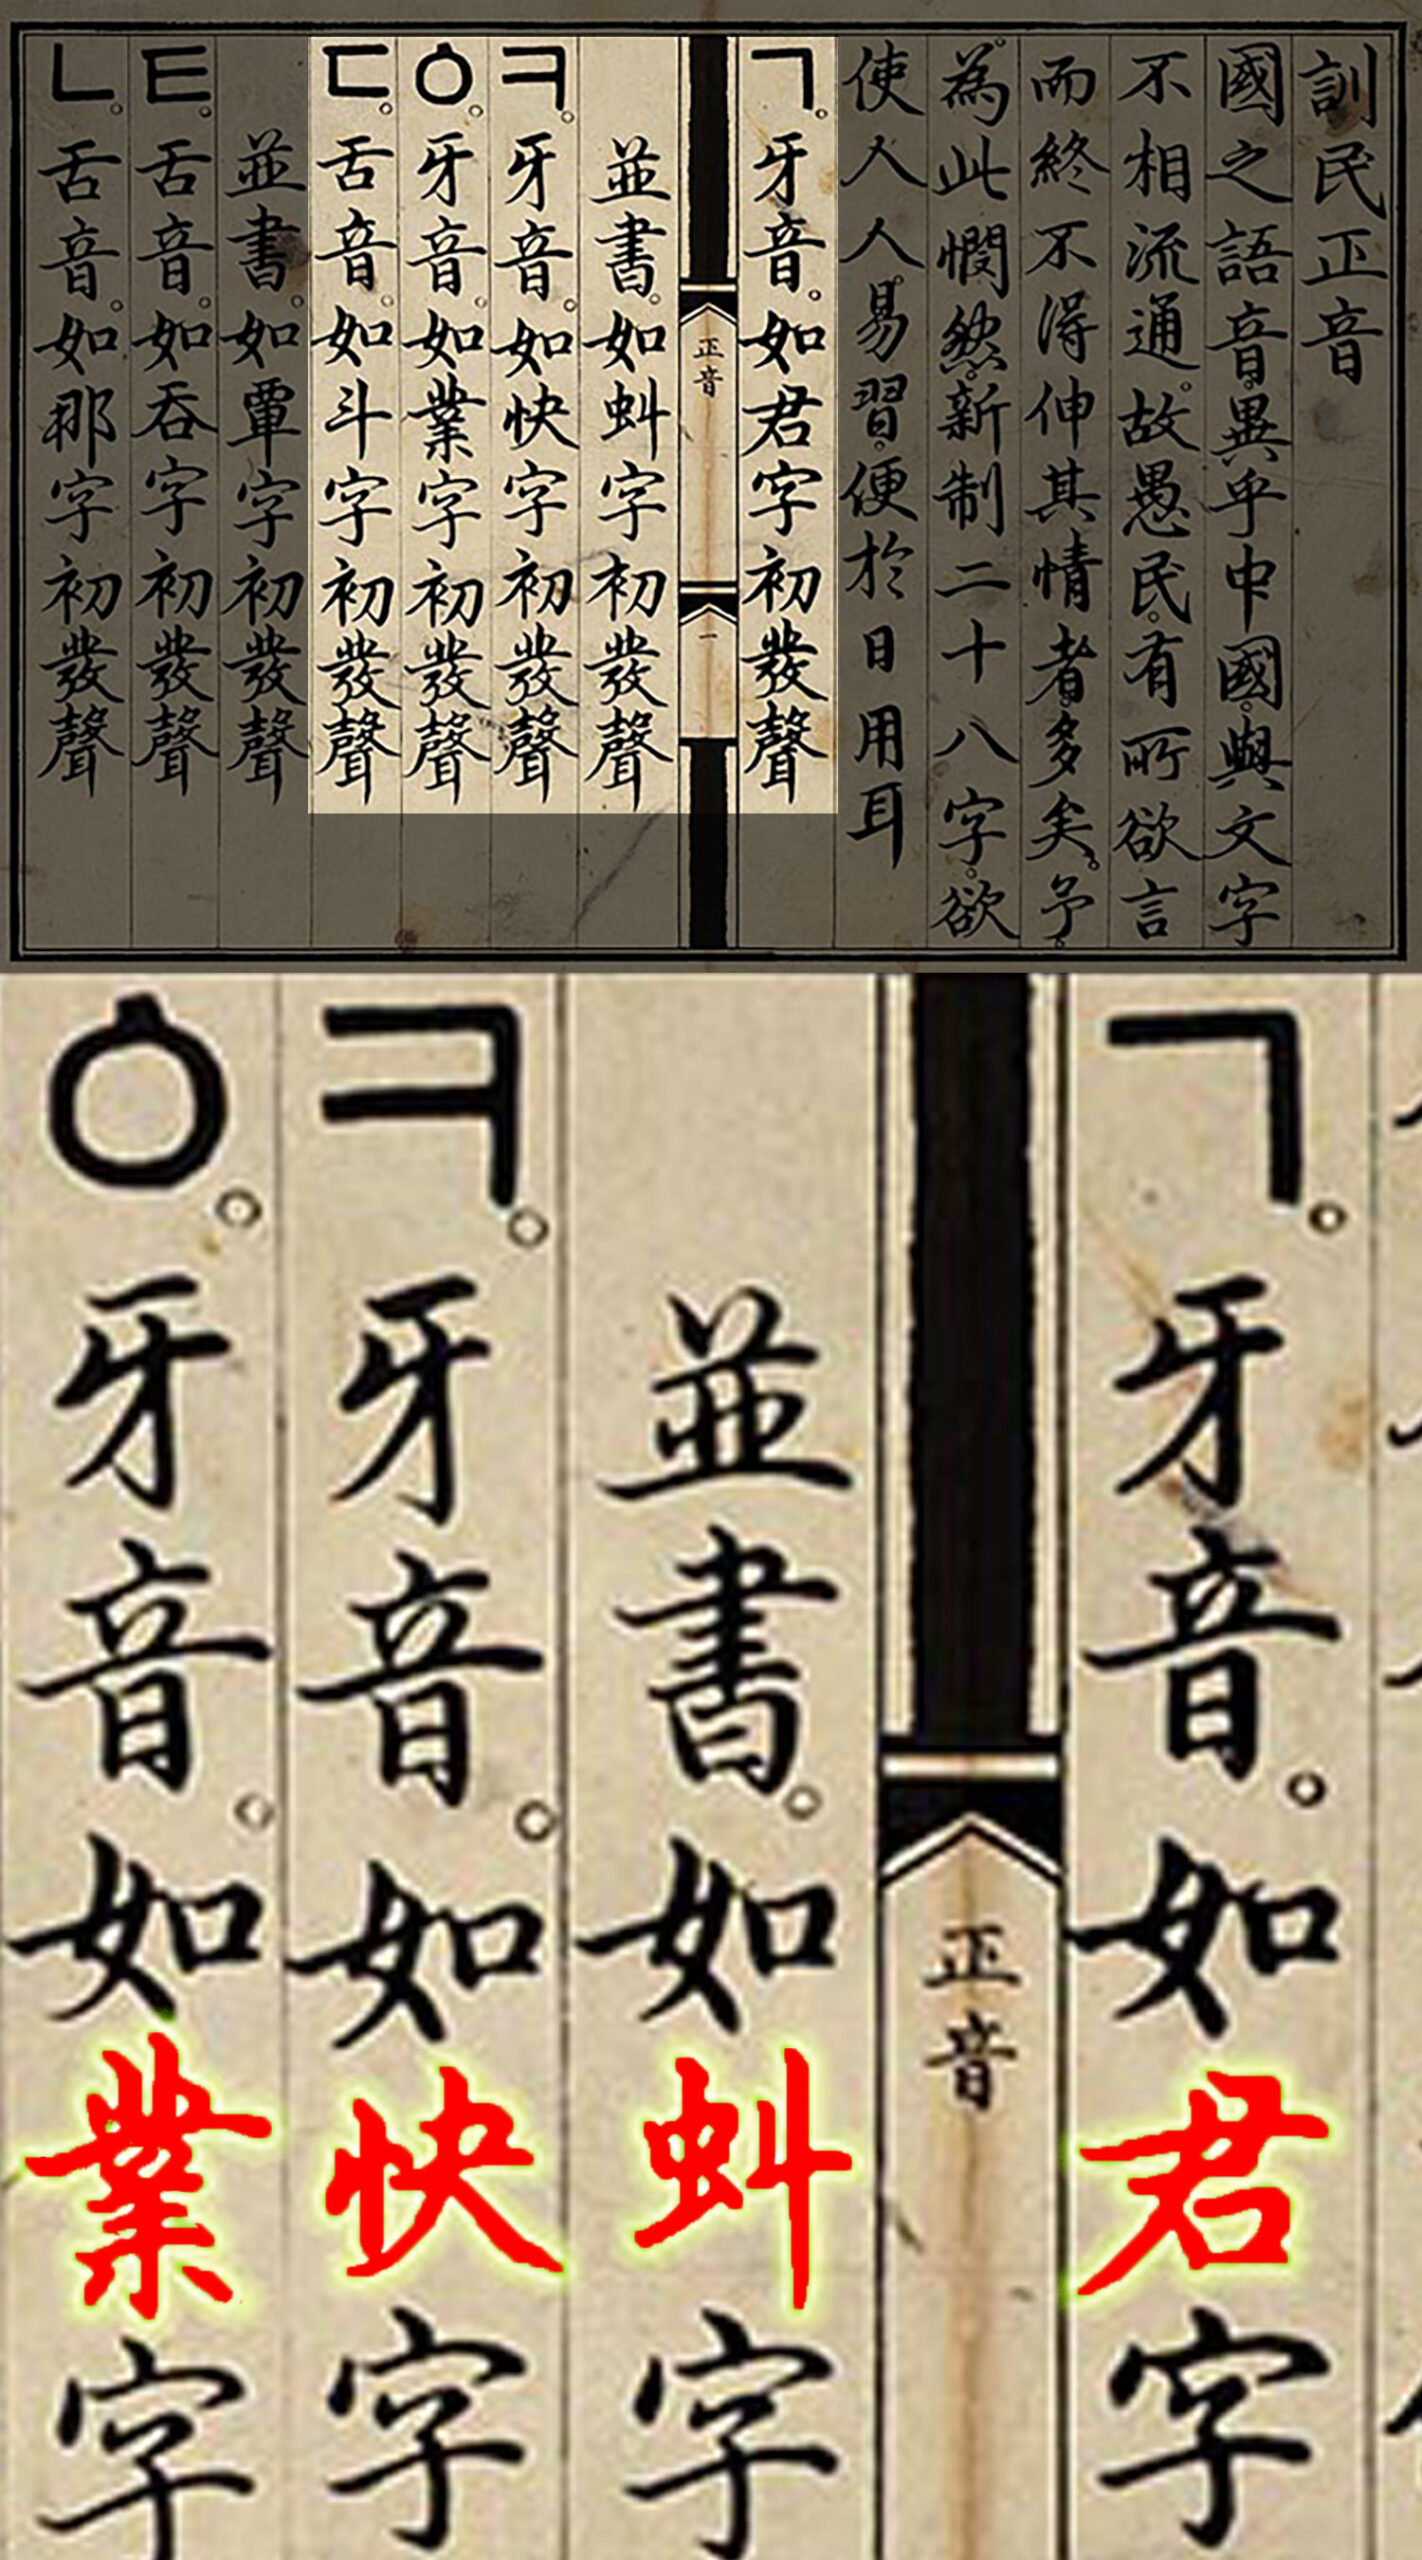 訓民正音
國之語音。異乎中國。與文字
不相流通。故愚民。有所欲言
而終不得伸其情者。多矣。予。
為此憫然。新制二十八字。欲
使人人易習。便於日用耳
ㄱ。牙音。如君字初發聲
正音
一
並書。如虯字初發聲
ㅋ。牙音。如快字初發聲
ㆁ。牙音。如業字初發聲
ㄷ。舌音。如斗字初發聲
並書。如覃字初發聲
ㅌ。舌音。如呑字初發聲
ㄴ。舌音。如那字初發聲
ㄱ。牙音。如君字
正音
並書。如虯字
ㅋ。牙音。如快字
ㆁ。牙音。如業字